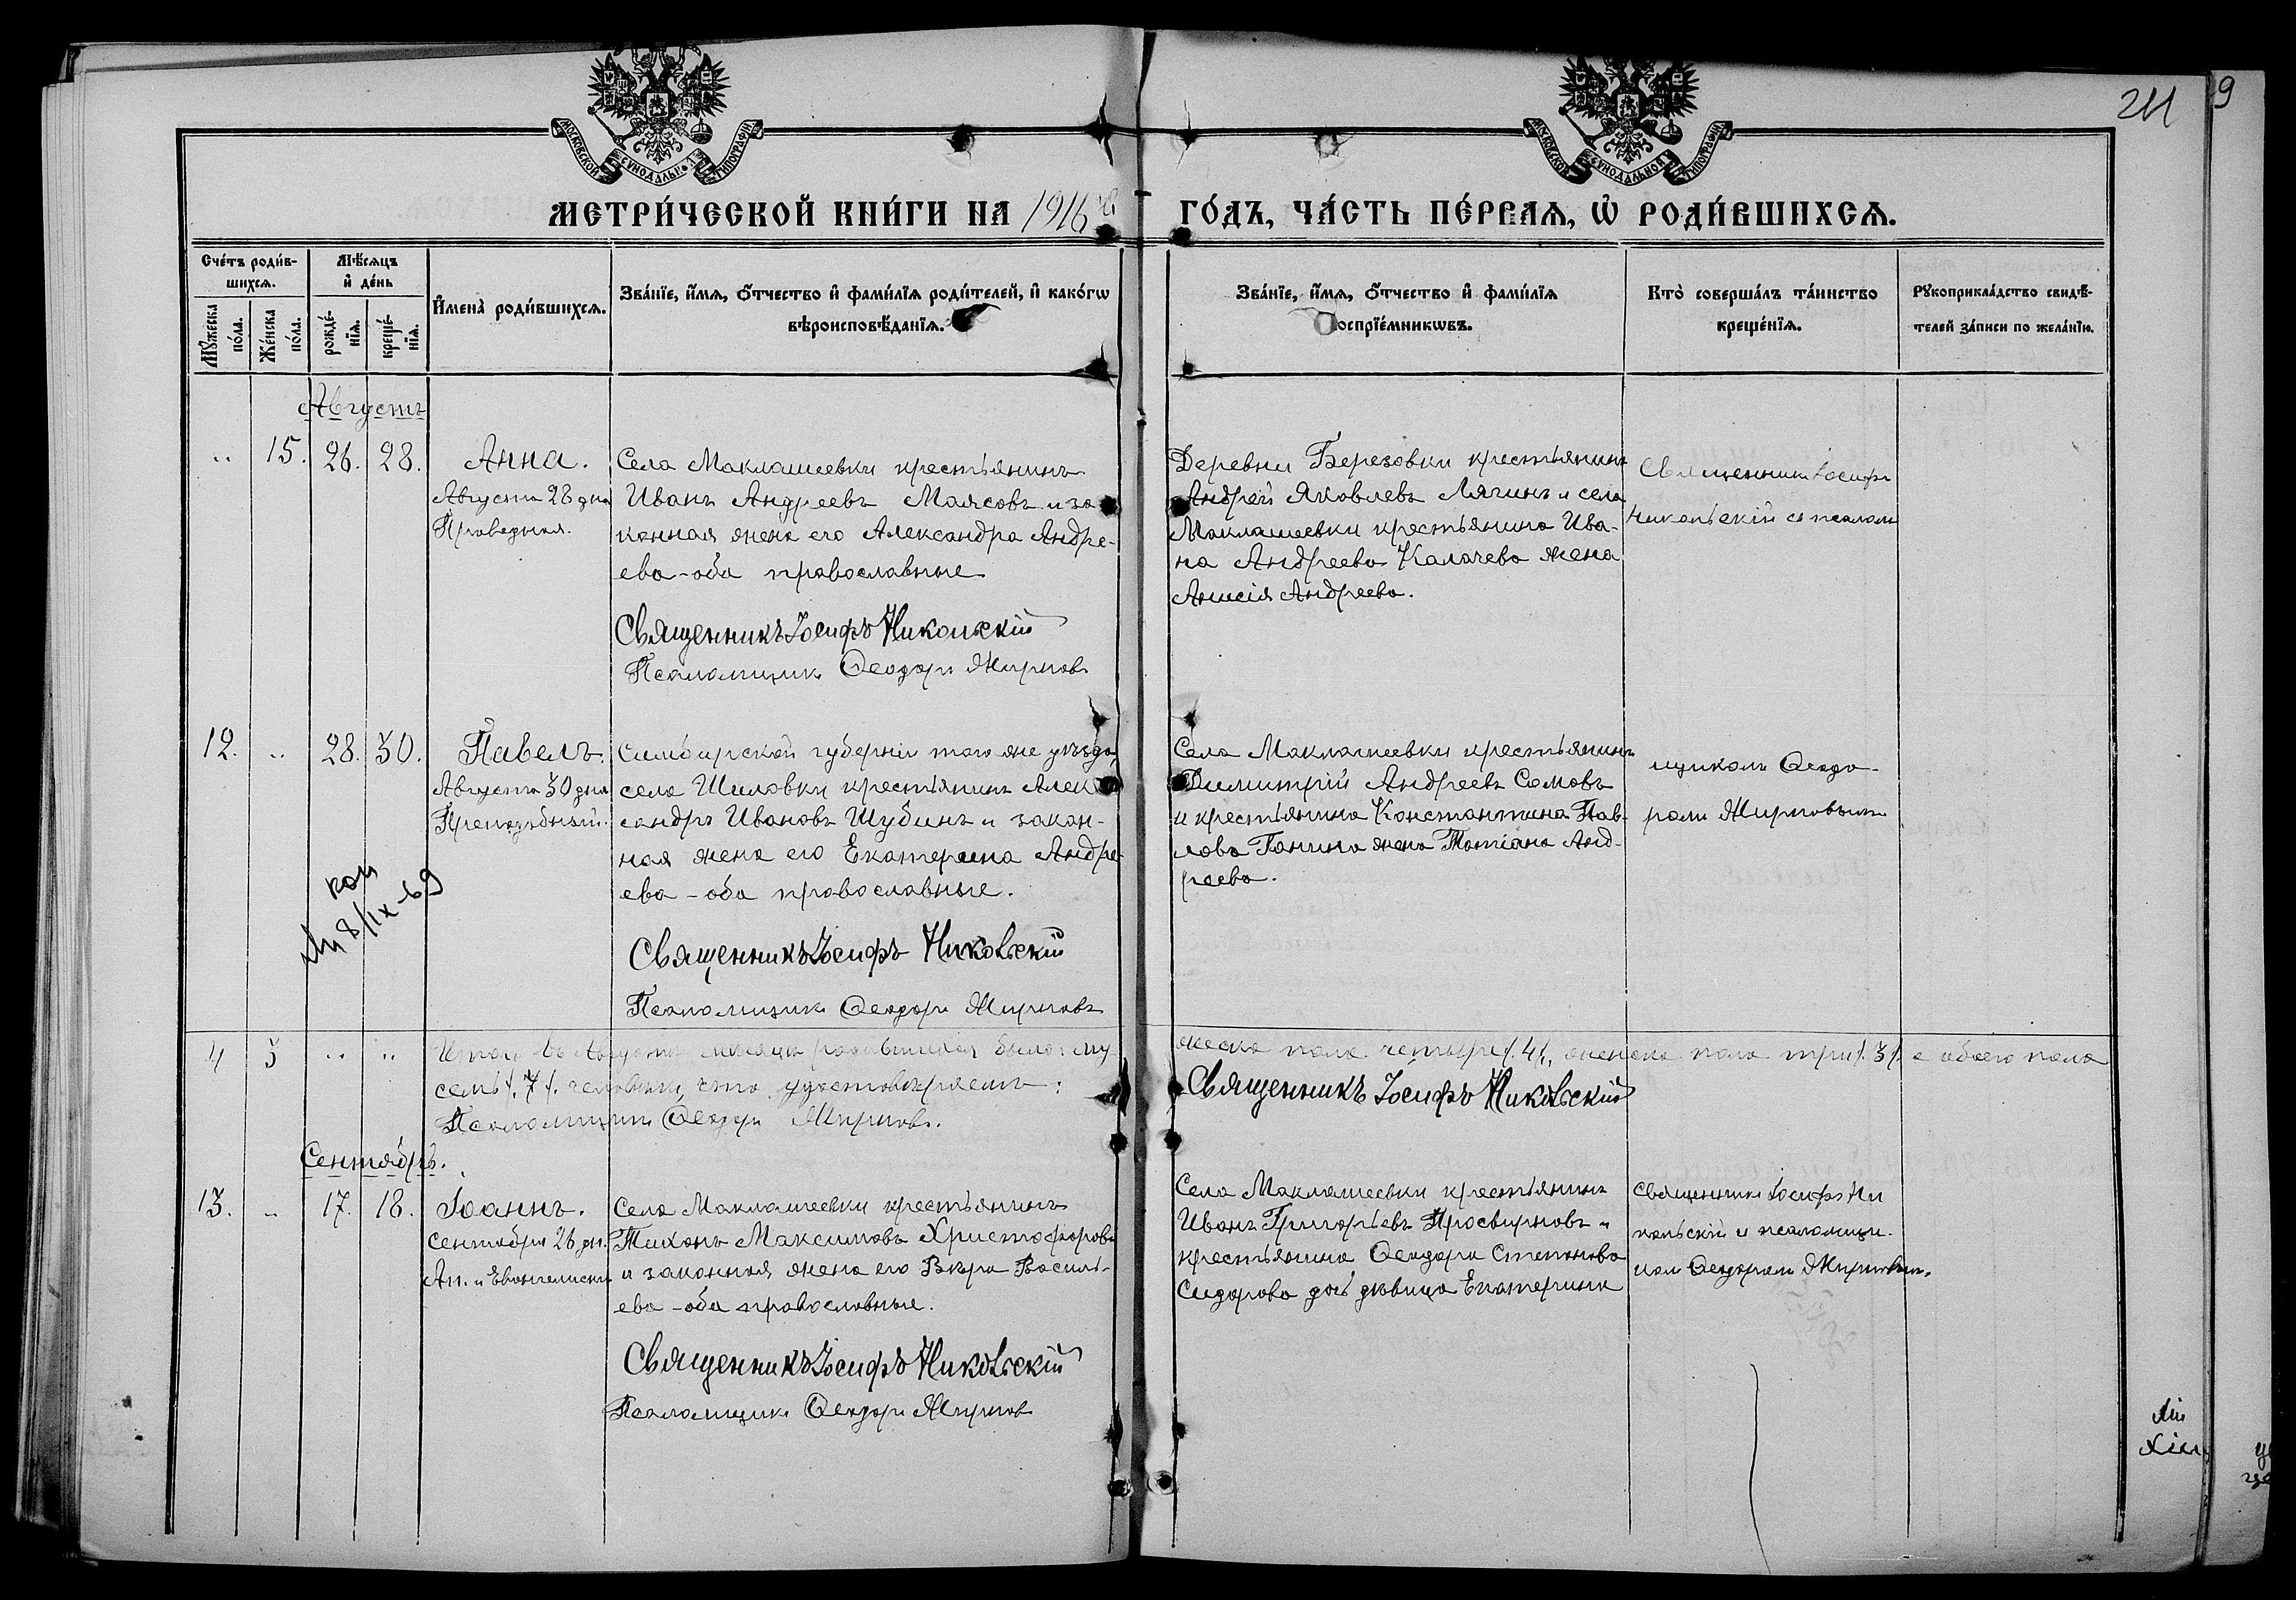 211
9
МОСКОВСКОЙ СУНОДАЛЬНОЙ ТИПОГРАФІИ
МОСКОВСКОЙ СУНОДАЛЬНОЙ ТИПОГРАФІИ
МЕТРИ́ЧЕСКОЙ КНИ́ГИ НА 1916 й
ГО́ДЪ, ЧА́СТЬ ПЕ́РВАЯ, Ѡ҆ РОДИ́ВШИХСЯ.
Сче́тъ роди́в-
шихся.
Мѣ́сяцъ
и҆ де́нь
Мꙋ́жеска по́ла.
Же́нска по́ла.
рожде́-нїя.
креще́-нїя.
И҆мена̀ роди́вшихся.
Зва́нїе, и҆́мя, ѻ҆́тчество и҆ фами́лїя роди́телей, и҆ како́гѡ
вѣроисповѣ́данїя.
Зва́нїе, и҆́мя, ѻ҆́тчество и҆ фами́лїя
оспрїе́мникѡвъ.
Кто̀ соверша́лъ та́инство
креще́нїя.
Рꙋкоприкла́дство свидѣ́-
телей за́писи по жела́нїю.
Августъ
„ 15. 26. 28. Анна.
Августа 28 дня
Праведная.
Села Маклашеевки крестьянинъ
Иванъ Андреевъ Маясовъ и за
конная жена его Александра Андре-
ева - оба православные
Священникъ Іосифъ Никольскій
Псаломщикъ Ѳеодоръ Жирновъ
Деревни Березовки крестьянинъ
Андрей Яковлевъ Лягинъ и села
Маклашеевки крестьянина Ива-
на Андреева Калачева жена
Анисія Андреева.
Священникъ Іосифъ
Никольскій съ псалом
12. „ 28. 30. Павелъ.
Августа 30 дня
Преподобный.
Симбирской губерніи того же уѣзда,
села Шиловки крестьянинъ Алек
сандръ Ивановъ Шубинъ и закон-
ная жена его Екатерина Андре-
ева - оба православные.
Священникъ Іосифъ Никольскій
Псаломщикъ Ѳеодоръ Жирновъ
Села Маклашеевки крестьянинъ
Димитрій Андреевъ Сомовъ
и крестьянина Константина Пав-
лова Панина жена Татіана Анд-
реева.
щикомъ Ѳеодо-
ромъ Жирновымъ
8/IX-69
4 3 „ „ Итого въ Августѣ мѣсяцѣ родившихся было: му
жеска пола четыре /.4/., женска пола три /.3/. а обоего пола
семь /.7/. человѣкъ, что удостовѣряемъ:
Священникъ Іосифъ Никольскій
Псаломщикъ Ѳеодоръ Жирновъ.
Сентябрь.
13. „ 17. 18. Іоаннъ.
Сентября 26 дн.
Ап. и Евангелиста
Села Маклашеевки крестьянинъ
Тихонъ Максимовъ Христофоровъ
и законная жена его Вѣра Василь-
ева - оба православные.
Священникъ Іосифъ Никольскій
Псаломщикъ Ѳеодоръ Жирнов
Села Маклашеевки крестьянинъ
Иванъ Григорьевъ Просвирновъ и
крестьянина Ѳеодора Степанова
Сидорова дочь дѣвица Екатерина
Священникъ Іосифъ Ни
кольскій и псаломщи-
комъ Ѳеодоромъ Жирновым.